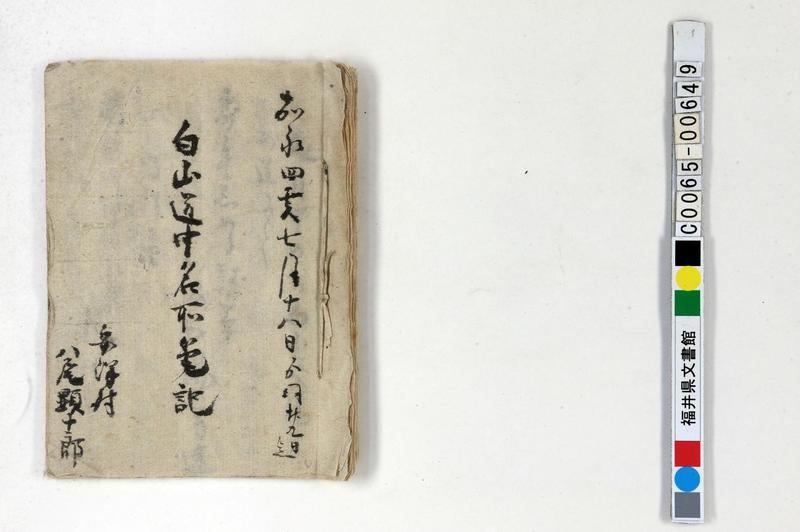 嘉永四亥七月十八日ゟ同廿九日迄
白山道中名所筆記
村
八尾顕十郎
C0065-00649
福井県文書館